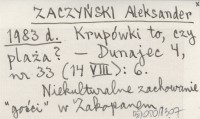 ZACZYŃSKI Aleksander
1983 d. Krupówki to, czy
plaża? — Dunajec 4,
nr 33 (14 VIII): 6.
Niekulturalne zachowanie
"gości" w Zakopanem